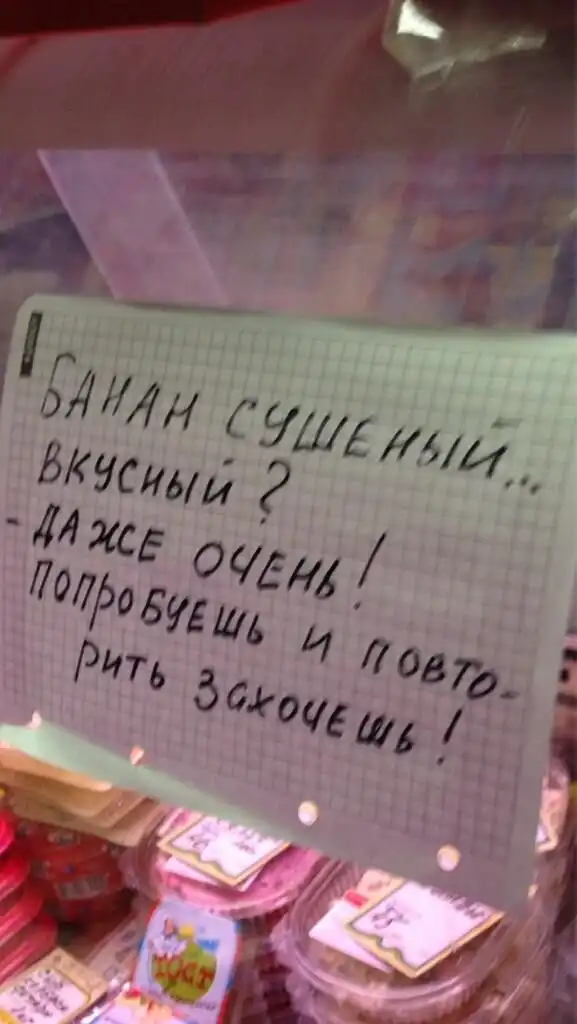 БАНАН СУШЕНЫЙ...
ВКУСНЫЙ?
- ДАЖЕ ОЧЕНЬ!
ПОПРОБУЕШЬ И ПОВТО-
РИТЬ ЗАХОЧЕШЬ!